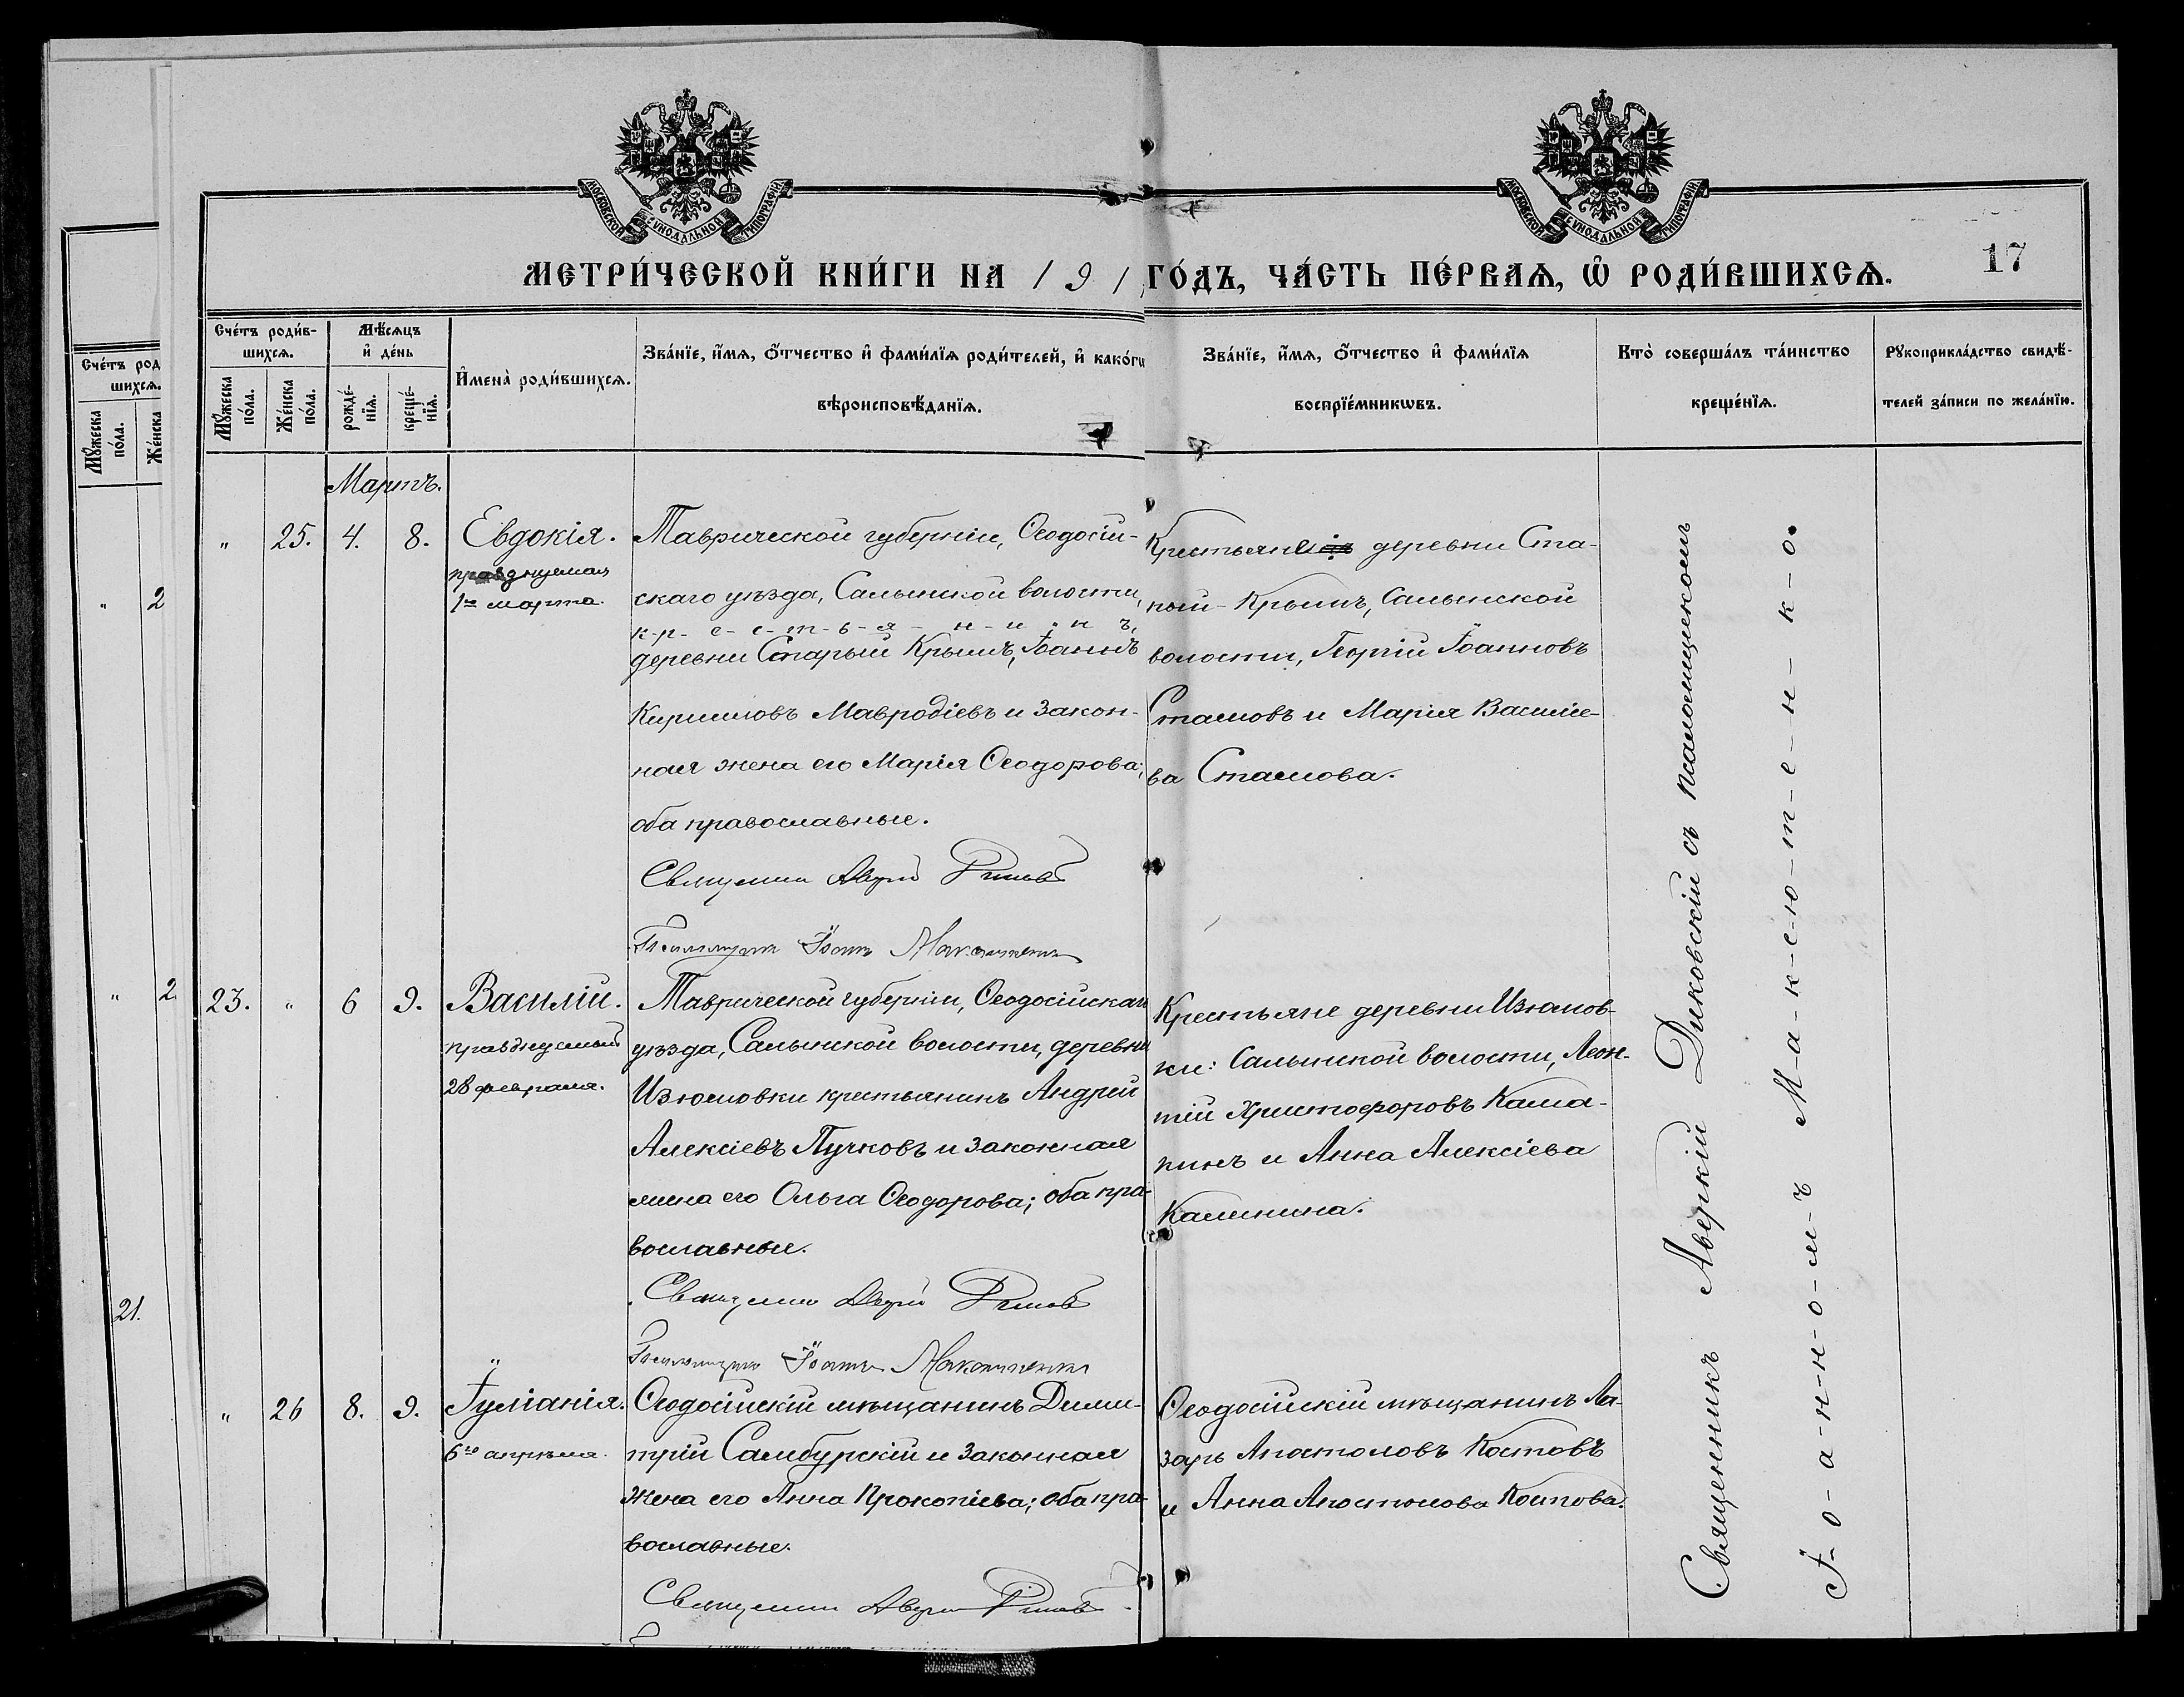 МОСКОВСКОЙ СѴНОДАЛЬНОЙ ТИПОГРАФІИ
МОСКОВСКОЙ СѴНОДАЛЬНОЙ ТИПОГРАФІИ
17
МЕТРИ́ЧЕСКОЙ КНИ́ГИ НА 191 ГО́ДЪ, ЧА́СТЬ ПЕ́РВАѦ, Ѡ҆ РОДИ́ВШИХСѦ.
Сче́тъ род
шихсѧ.
Мꙋ́жеска по́ла.
Же́нска
Сче́тъ роди́в-
шихсѧ.
Мꙋ́жеска по́ла.
Же́нска по́ла.
Мѣ́сѧцъ
и҆ де́нь
рожде́-
нїѧ.
креще́-
нїѧ.
И҆мена̀ роди́вшихсѧ.
Зва́нїе, и҆́мѧ, ѻ҆́тчество и҆ фами́лїѧ роди́телей, и҆ како́гѡ
вѣроисповѣ́данїѧ.
Зва́нїе, и҆́мѧ, ѻ҆́тчество и҆ фами́лїѧ
воспрїе́мникѡвъ.
Кто̀ соверша́лъ та́инство
креще́нїѧ.
Рꙋкоприкла́дство свидѣ́-
телей за́писи по жела́нїю.
" 2
" 2
21.
Мартъ.
" 25. 4. 8.
Евдокія.
празднуемая
1го марта.
Таврической губерніи, Ѳеодосій-
скаго уѣзда, Салынской волости,
к-р-е-с-т-ь-я-н-и-н-ъ,
деревни Старый Крымъ, Іоаннъ
Кирилловъ Мавродіевъ и закон-
ная жена его Марія Ѳеодорова;
оба православные.
Священник Аверкій
Псаломщикъ Іоаннъ Максютенко
Крестьяне деревни Ста-
рый-Крымъ, Салынской
волости, Георгій Іоанновъ
Стамовъ и Марія Василіе-
ва Стамова.
23. " 6 9.
Василій.
празднуемый
28 февраля.
Таврической губерніи, Ѳеодосійскаго
уѣзда, Салынской волости, деревни
Изюмовки крестьянинъ Андрей
Алексіевъ Пучковъ и законная
жена его Ольга Ѳеодорова; оба пра-
вославные.
Священник Аверкій
Псаломщикъ Іоаннъ Максютенко
Крестьяне деревни Изюмов-
ки: Салынской волости, Леон-
тій Христофоровъ Кали-
нинъ и Анна Алексіева
Калинина.
" 26 8. 9.
Іуліанія.
6го апрѣля.
Ѳеодосійскій мѣщанинъ Дими-
трій Самбурскій и законная
жена его Анна Прокопіева; оба пра-
вославные.
Священник Аверкій
Ѳеодосійскій мѣщанинъ Ла-
зарь Апостоловъ Костовъ
и Анна Апостолова Костова.
Священникъ Аверкій Диковскій съ псаломщикомъ
І-о-а-н-н-о-м-ъ М-а-к-с-ю-т-е-н-к-о.